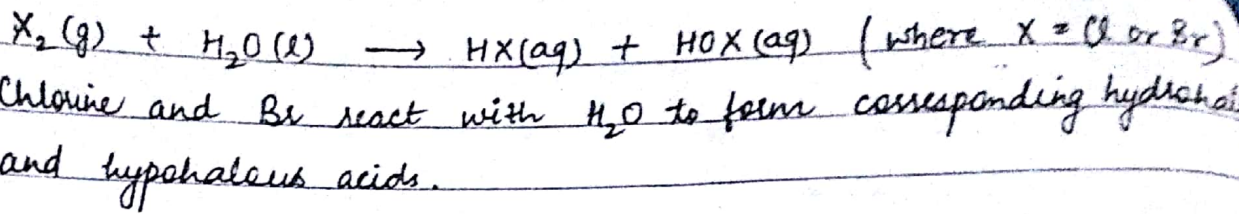 X₂(g) + H₂O(l) → HX(aq) + HOX(aq) (where X = Cl or Br)
Chlorine and Br react with H₂O to form corresponding
and hypohalous acids.